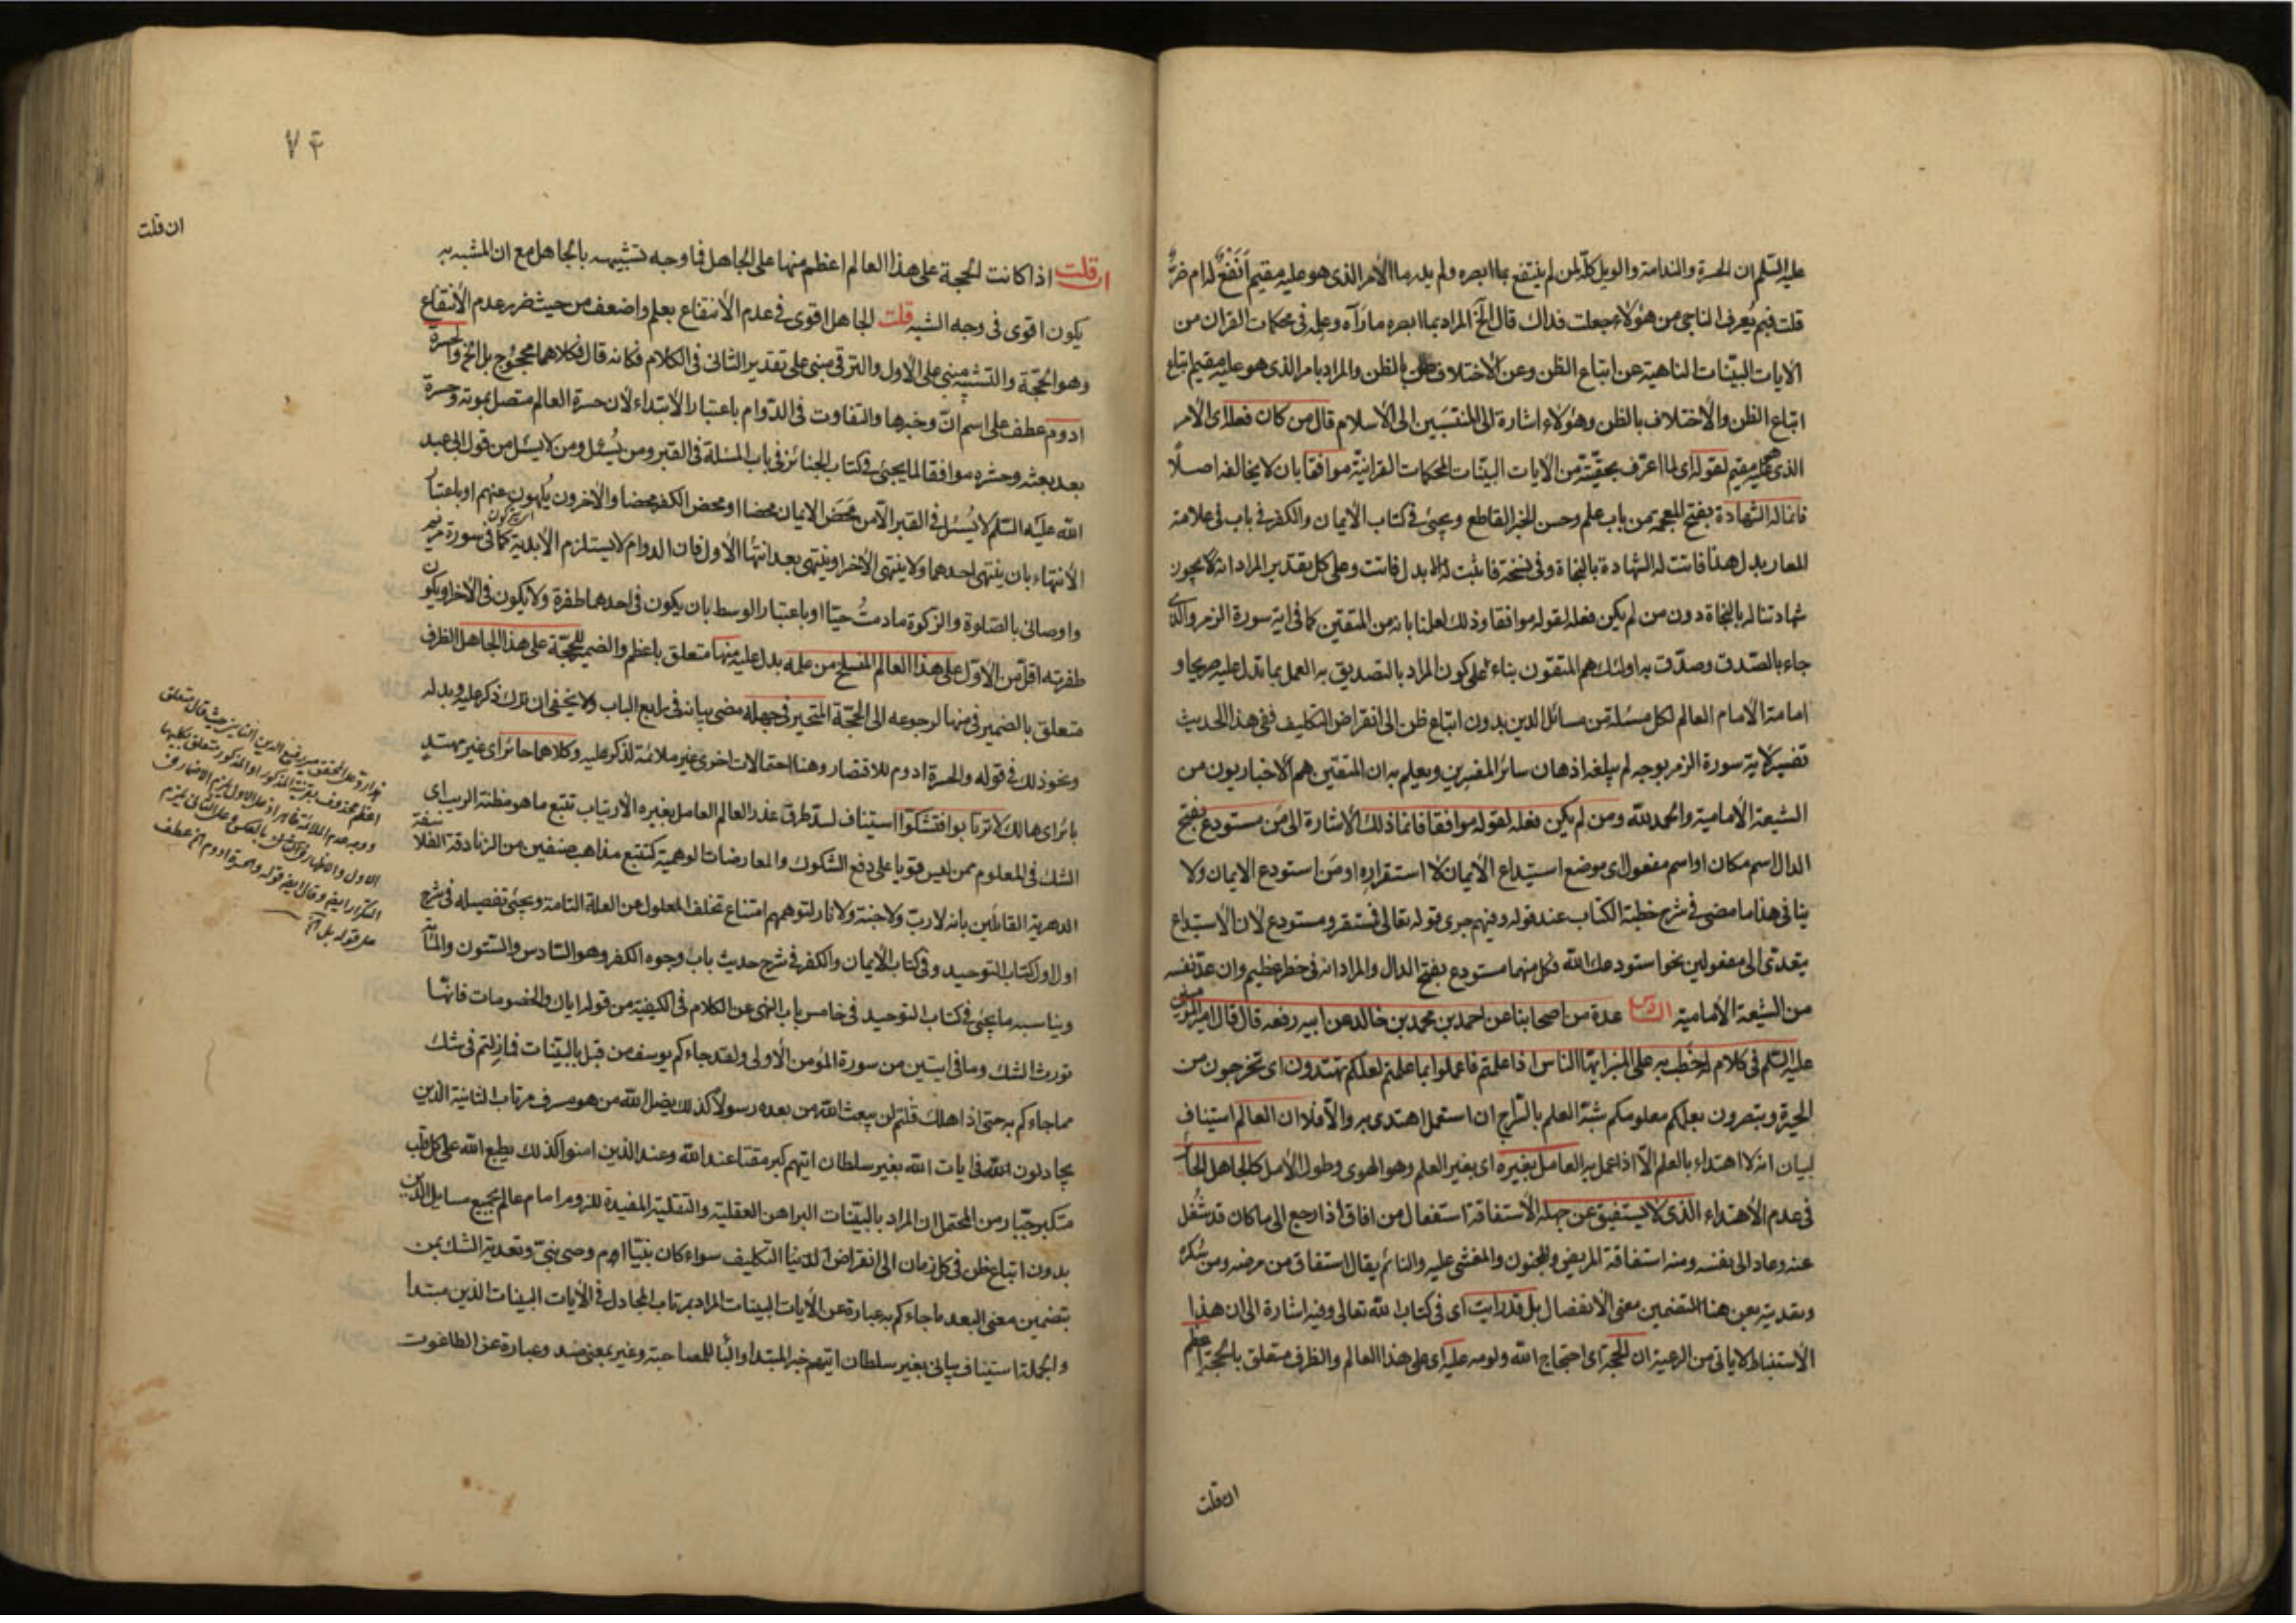 عليه السّلم ان الحسرة والندامة والويل كلّه لمن لم ينتفع بما ابصره ولم يدر ما الأمر الذى هو عليه مقيم أنفع له ام ضرّ
قلت فبم يُعرف الناجى من هؤلاء جعلت فداك قال الخ المراد بما ابصره ما رآه وعلمه فى محكمات القران من
الايات البيّنات الناهية عن اتباع الظن وعن الأختلاف بالظن والمراد بامر الذى هو عليه مقيم اتباع
اتباع الظن والأختلاف بالظن وهؤلاء اشارة الى المنتسبين الى الاسلام قال من كان فعله اى الأمر
الذى هو عليه مقيم لقوله اى لما اعترف بحقيّته من الأيات البيّنات المحكمات القرانيّة موافقا بان لا يخالفه اصلًا
فانما له الشهادة بفتح المعجمة من باب علم وحسن الخبر القاطع ويجئ فى كتاب الأيمان والكفر فى باب فى علامة
المعار بدل هذا فاتت له الشهادة بالنجاة وفى نسخة فاثبت له بدل فاتت وعلى كل تقدير المراد انه لا يجوز
شهادتنا له بالنجاة دون من لم يكن فعله لقوله موافقا وذلك لعلمنا بانه من المتقين كما فى اية سورة الزمر والذى
جاء بالصّدق وصدّق به اولئك هم المتقون بناء على كون المراد بالتصديق به العمل بما تدل عليه صريحا و
امامة الأمام العالم لكل مسئلة من مسائل الدين بدون اتباع ظن الى انقراض التكليف ففى هذا الحديث
تفسير لاية سورة الزمر بوجه لم يبلغه اذهان سائر المفسرين ويعلم به ان المتقين هم الأخباريون من
الشيعة الأمامية والحمد لله ومن لم يكن فعله لقوله موافقا فانما ذلك الأشارة الى مَن مستودع بفتح
الدال اسم مكان او اسم مفعول اى موضع استيداع الأيمان لا استقراره او مَن استودع الايمان ولا
ينافى هذا ما مضى فى شرح خطبة الكتاب عند قوله وفيهم جرى قوله تعالى فمستقر ومستودع لأن الأستيداع
يتعدّى الى مفعولين نحو استودعك الله فكل منهما مستودع بفتح الدال والمراد انه فى خطر عظيم وان عدّ نفسه
من الشيعة الأمامية السادس عدة من اصحابنا عن احمد بن محمد بن خالد عن ابيه رفعه قال قال امير المؤمنين
عليه السّلم فى كلام له خطب به على المنبر ايها الناس اذا علمتم فاعملوا بما علمتم لعلكم تهتدون اى تخرجون من
الحيرة وتبصرون بعلمكم معلومكم شبّه العلم بالسّراج ان استعمل اهتدى به والّا فلا ان العالم استيناف
لبيان انه لا اهتداء بالعلم الّا اذا عمل به العامل بغيره اى بغير العلم وهو الهوى وطول الأمل كالجاهل الحائر
فى عدم الأهتداء الّذى لا يستفيق عن جهله الأستفاقة استفعال من افاق اذا رجع الى ما كان قد شُغل
عنه وعاد الى نفسه ومنه استفاقة المريض والمجنون والمغشى عليه والنائم يقال استفاق من مرضه ومن سُكره
وتعديته بعن هنا لتضمين معنى الأنفصال بل قد رايت اى فى كتاب الله تعالى وفيه اشارة الى ان هذا
الأستنباط لا ياتى من الرعية ان الحجة اى احتجاج الله ولومه عليه اى على هذا العالم والظرف متعلق بالحجة اعظم
ان قلت
٧٤
ان قلت
ان قلت اذا كانت الحجة على هذا العالم اعظم منها على الجاهل فما وجه تشبيهه بالجاهل مع ان المشبه به
يكون اقوى فى وجه الشبه قلت الجاهل اقوى فى عدم الأنتفاع بعلم واضعف من حيث ضرر عدم الأنتفاع
وهو الحجّة والتشبيه مبنى على الأول والترقى مبنى على تقدير الثانى فى الكلام فكانه قال فكلاهما محجوج بل الخ والحسرة
ادوم عطف على اسم انّ وخبرها والتفاوت فى الدّوام باعتبار الأبتداء لأن حسرة العالم متصل بموته وحسرة
بعد بعثه وحشره موافقا لما يجئ فى كتاب الجنائز فى باب المسئلة فى القبر ومن يُسئل ومن لا يسئل من قول ابى عبد
الله عليه السّلم لا يُسئل فى القبر الّا من مَحَض الايمان محضا او محض الكفر محضا والأخرون يُلهون عنهم او باعتبار
الأنتهاء بان ينتهى احدهما ولا ينتهى الأخر او ينتهى بعد انتهاء الأول فان الدوام لا يستلزم الأبدية كما فى سورة مريم
واوصانى بالصّلوة والزكوة ما دمتُ حيّا او باعتبار الوسط بان يكون فى احدهما طفرة ولا يكون فى الأخر او يكون
طفرته اقلّ من الأوّل على هذا العالم المنسلخ من علمه بدل عليه منها متعلق باعظم والضمير للحجّة على هذا الجاهل الظرف
متعلق بالضمير فى منها لرجوعه الى الحجّة المتحيّر فى جهله مضى بيانه فى رابع الباب ولا يخفى ان ترك ذكر عليه وبدله
ونحو ذلك فى قوله والحسرة ادوم للاقتصار وهنا احتمالات اخرى غير ملائمة لذكر عليه وكلاهما حائر اى غير مهتد
بائر اى هالك لا ترتابوا فتشكّوا استيناف لسدّ طرق عذر العالم العامل بغيره الأرتياب تتبع ما هو مظنة الريب اى
الشك فى المعلوم ممن ليس قويا على دفع الشكوك والمعارضات الوهمية كتتبع مذاهب صنفين من الزنادقة الفلاسفة
الدهرية القائلين بانه لا ربّ ولا جنة ولا نار لتوهمهم امتناع تخلف المعلول عن العلة التامة ويجئ تفصيله فى شرح
اول اول كتاب التوحيد وفى كتاب الأيمان والكفر فى شرح حديث باب وجوه الكفر وهو السّادس والستون والمائة
ويناسبه ما يجئ فى كتاب التوحيد فى خامس باب النهى عن الكلام فى الكيفية من قوله اياك والخصومات فانّها
تورث الشك وما فى ايتين من سورة المؤمن الأولى ولقد جاءكم يوسف من قبل بالبيّنات فما زلتم فى شك
مما جاءكم به حتى اذا هلك قلتم لن يبعث الله من بعده رسولا كذلك يضل الله من هو مسرف مرتاب الثانية الذين
يجادلون فى ايات الله بغير سلطان اتيهم كبر مقتا عند الله وعند الذين امنوا كذلك يطبع الله على كل قلب
متكبر جبّار من المحتمل ان المراد بالبيّنات البراهين العقلية والنقلية المفيدة للزوم امام عالم بجميع مسايل الدّين
بدون اتباع ظن فى كل زمان الى انقراض الدنيا التكليف سواء كان نبيّا ام وصى نبىّ وتعدية الشك بمن
بتضمين معنى البعد ما جاءكم به عبارة عن الأيات البينات المراد بمرتاب المجادل فى الأيات البينات الذين مبتدا
والجملة استيناف بيانى بغير سلطان اتيهم خبر المبتدا والبا للمصاحبة وغير بمعنى ضد وعبارة عن الطاغوت